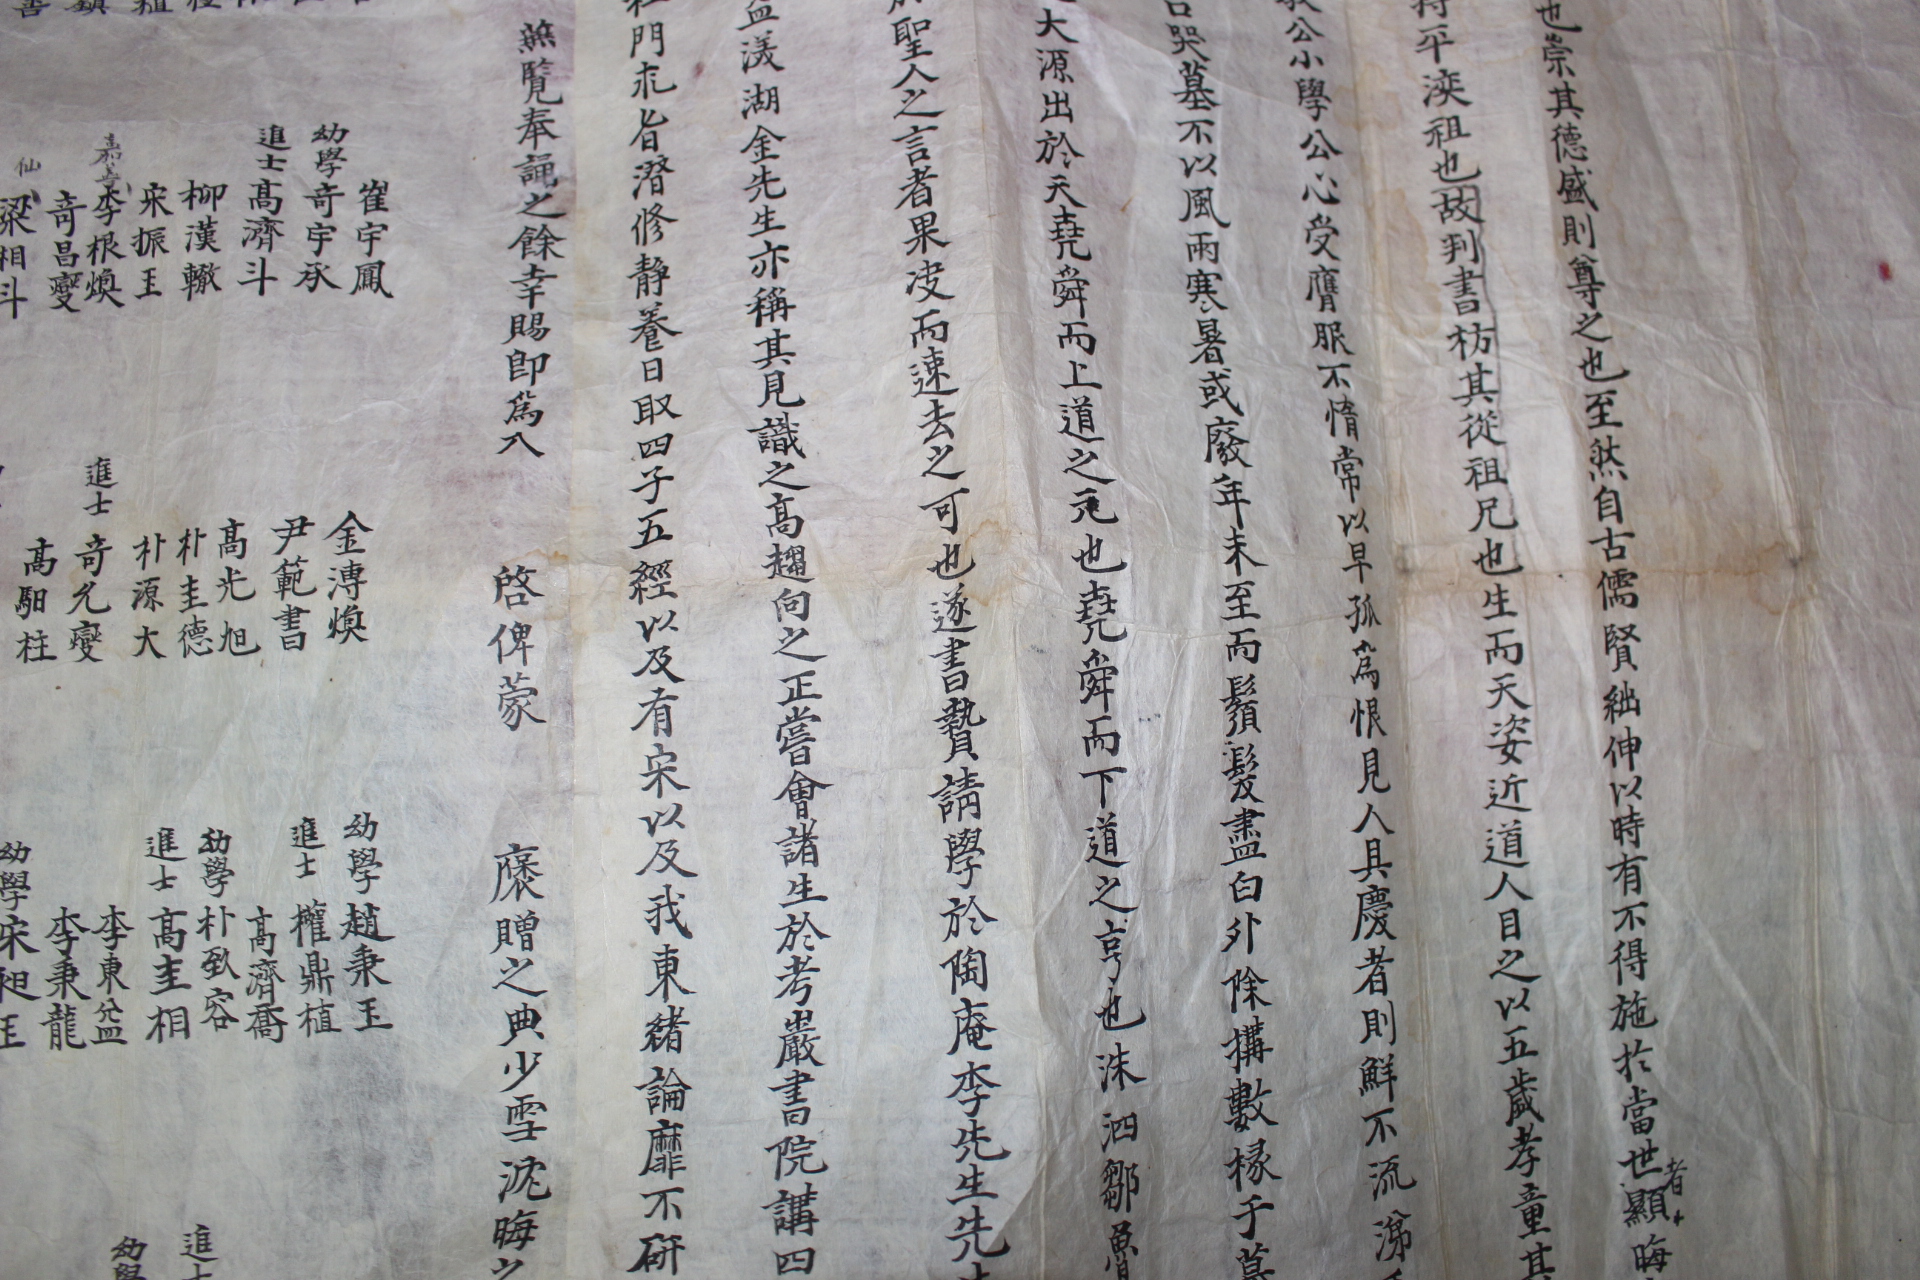 也崇其德盛則尊之也至然自古儒賢絀伸以時有不得施於當世者顯晦
持平渶祖也故判書枋其從祖兄也生而天姿近道人目之以五歲孝童其
敎公小學公心受膺服不惰常以早孤爲恨見人具慶者則鮮不流涕
哭墓不以風雨寒暑或廢年未至而鬚髮盡白外除搆數椽于墓
大源出於天堯舜而上道之元也堯舜而下道之亨也洙泗鄒魯
聖人之言者果沒而速去之可也遂書贄請學於陶庵李先生先
益渼湖金先生亦稱其見識之高趨向之正嘗會諸生於考巖書院講四
門求旨潛修靜養日取四子五經以及有宋以及我東緖論靡不硏
無覽奉誦之餘幸賜卽爲入 啓俾蒙 褒贈之典少雪沈晦之
崔宇鳳 金溥煥 幼學趙秉王
幼學奇宇承 尹範書 進士權鼎植
進士高濟斗 高光旭 高濟喬
柳漢轍 朴圭德 幼學朴致容
宋振王 朴源大 進士高圭相
嘉善李根煥 進士奇允燮 李東益
奇昌燮 高馹柱 李秉龍
仙 梁相斗 幼學宋昶王
進士
幼學